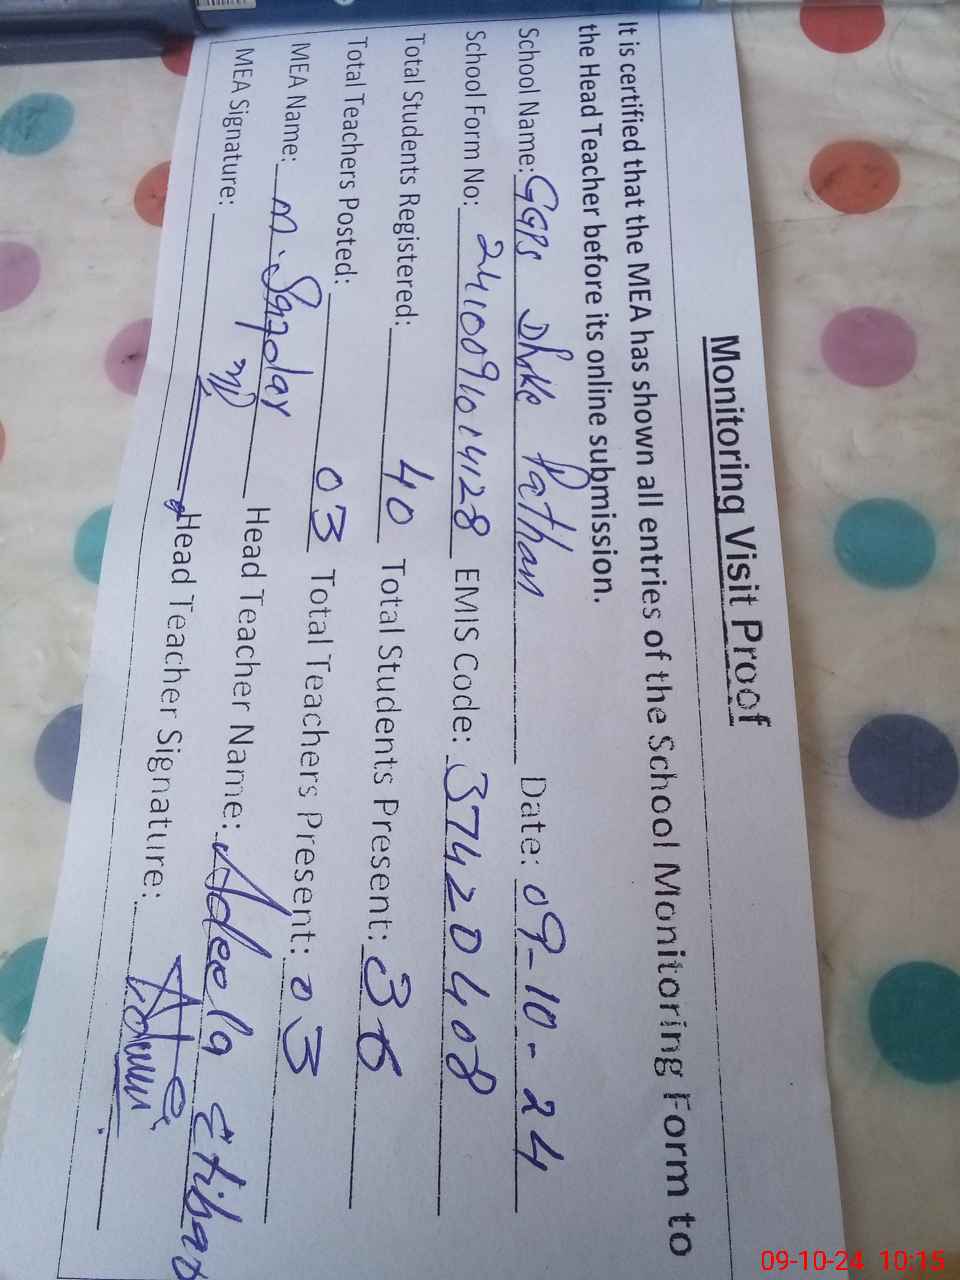 Monitoring Visit Proof
It is certified that the MEA has shown all entries of the School Monitoring Form to
the Head Teacher before its online submission.
School Name: GGPS Dhoke Pathan Date: 09-10-24
School Form No: 24100901014128 EMIS Code: 37420408
Total Students Registered: 40 Total Students Present: 36
Total Teachers Posted: 03 Total Teachers Present: 03
MEA Name: M. Safdar Head Teacher Name: Adeela
MEA Signature: Head Teacher Signature:
09-10-24 10:15